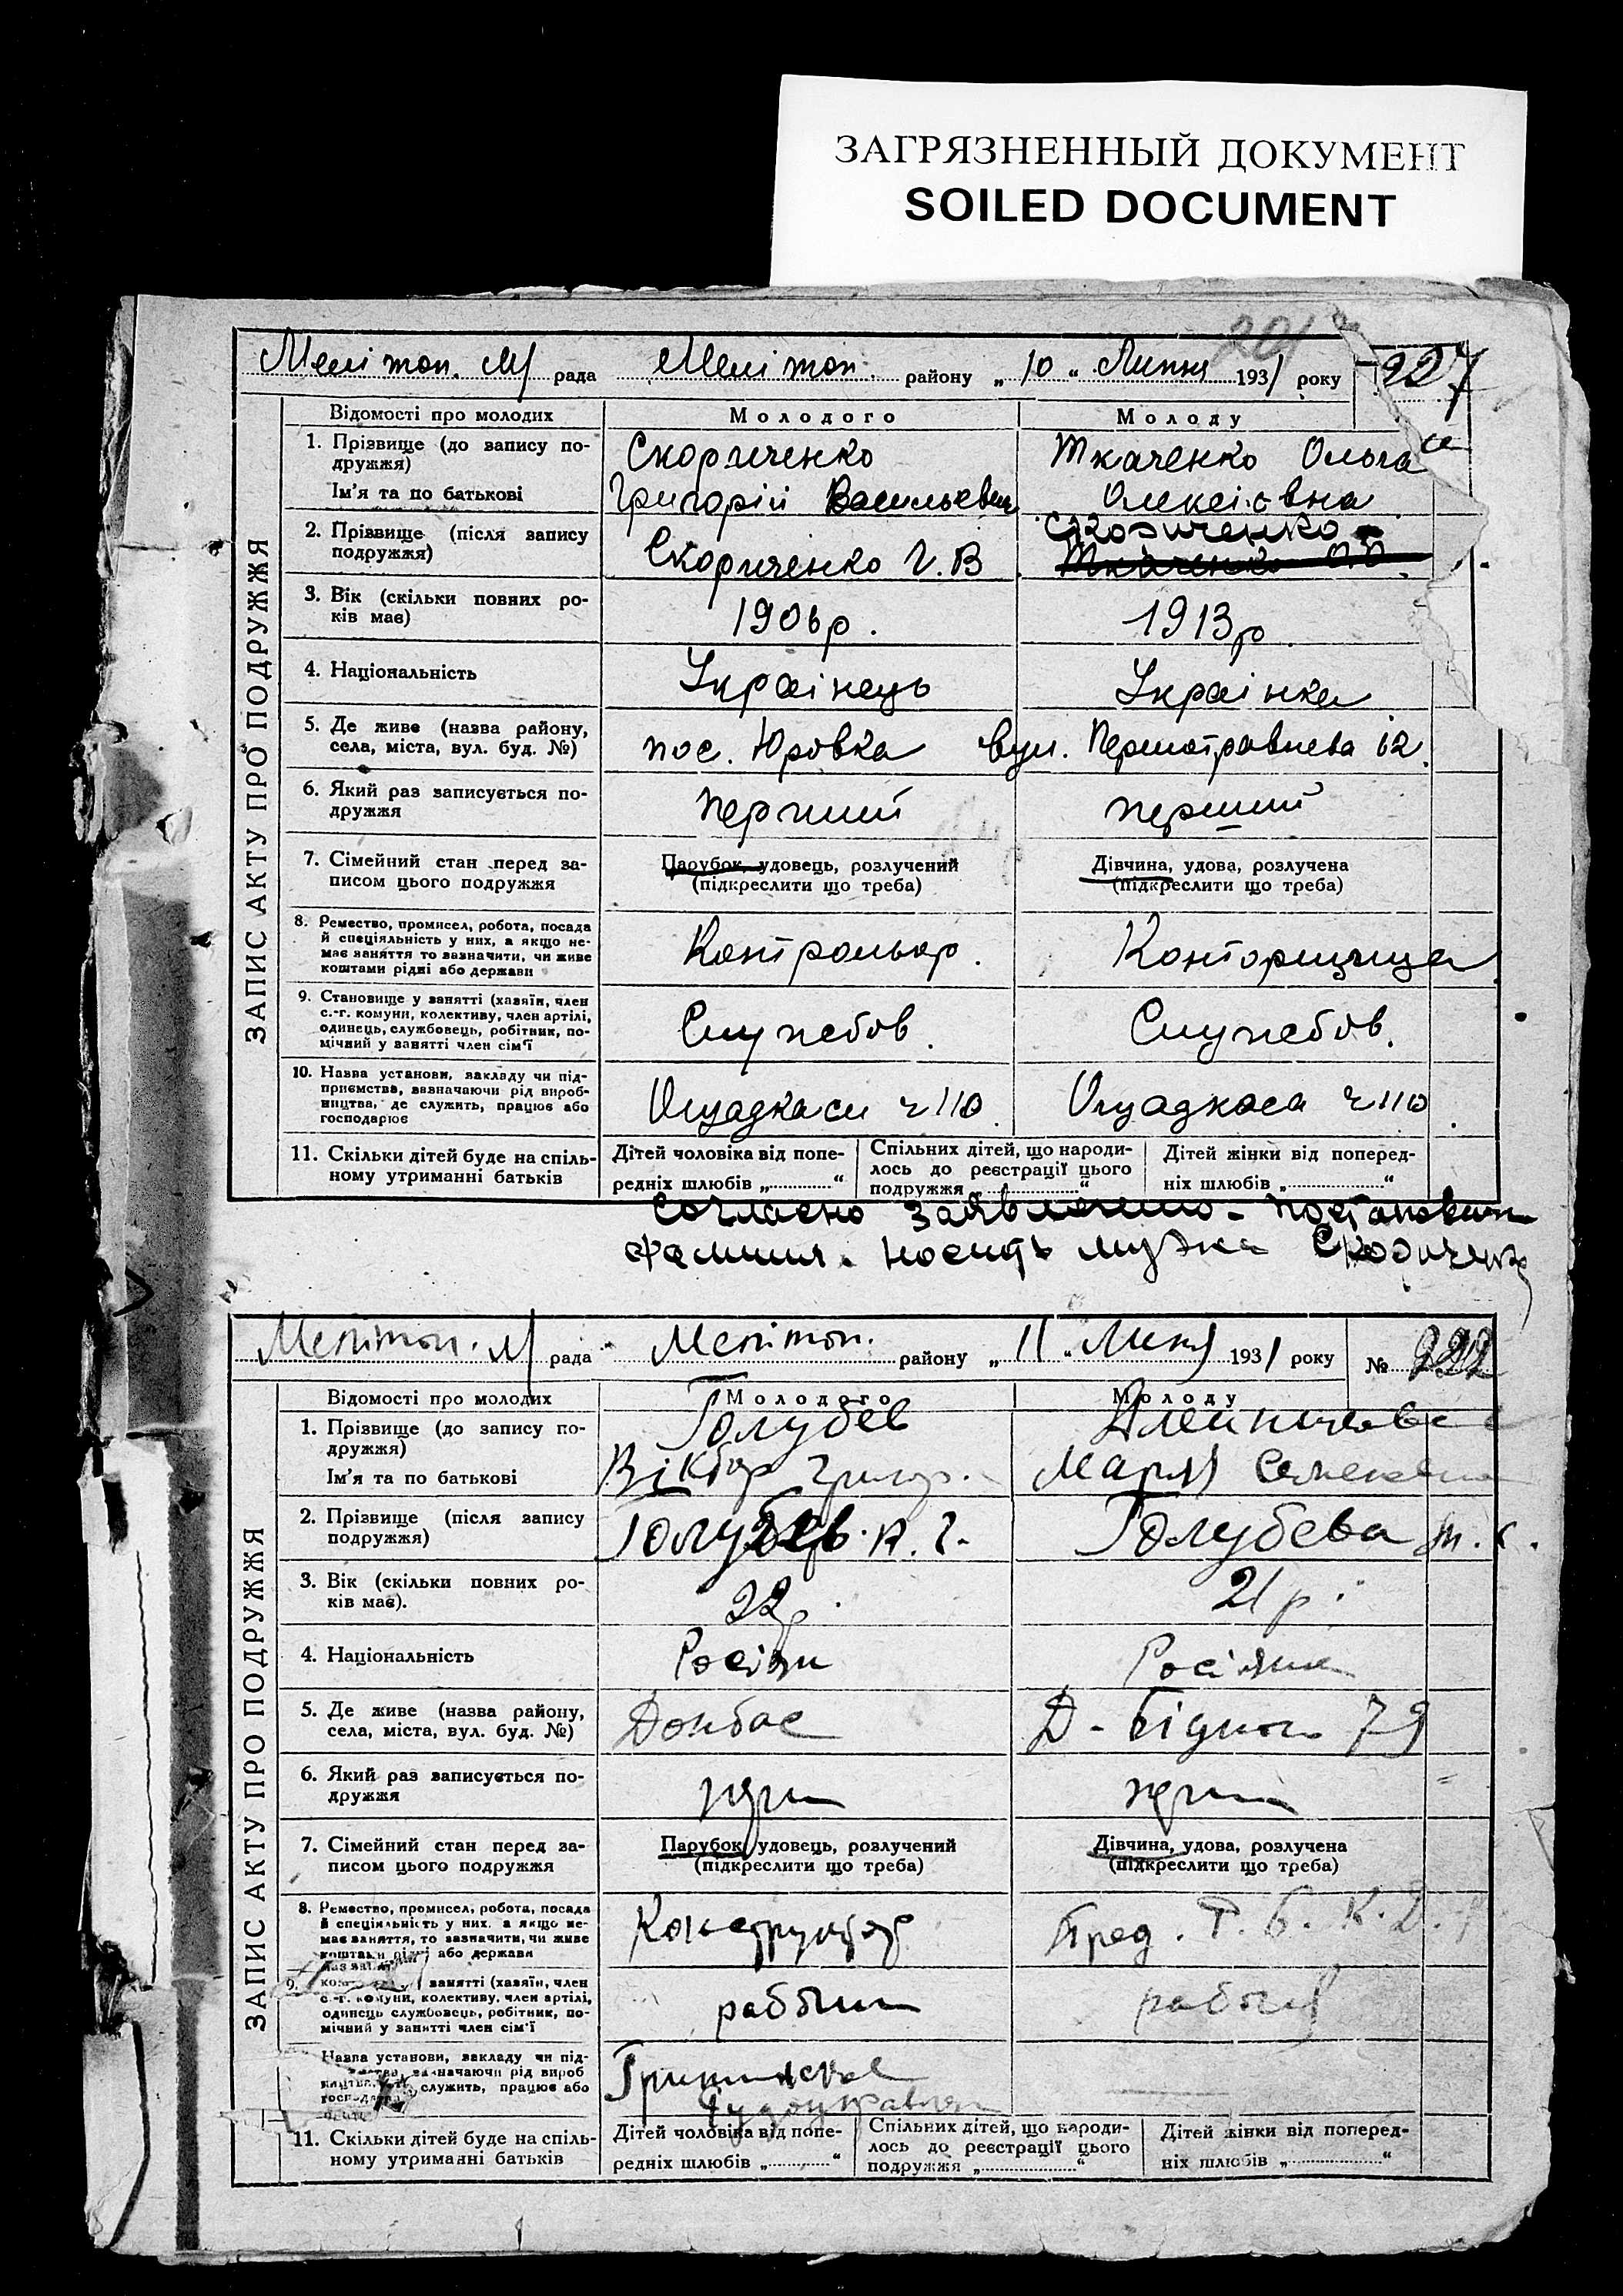 ЗАГРЯЗНЕННЫЙ ДОКУМЕНТ
SOILED DOCUMENT
201
Мелітоп. М/ рада Мелітоп. району „ 10 “ Липня 1931 року 227
ЗАПИС АКТУ ПРО ПОДРУЖЖЯ
Відомості про молодих Молодого Молоду
1. Прізвище (до запису по-
дружжя)
Ім’я та по батькові
Скориченко
Григорій Васильевич
Ткаченко Ольга
Олексіевна
2. Прізвище (після запису
подружжя)
Скориченко Г. В.
Скориченко
Ткаченко О.О.
3. Вік (скільки повних ро-
ків має)
1906р. 1913р.
4. Національність Українець Українка
5. Де живе (назва району,
села, міста, вул. буд. №)
пос. Юровка вул. Першотравнева 62.
6. Який раз записується по-
дружжя
перший перший
7. Сімейний стан перед за-
писом цього подружжя
Парубок, удовець, розлучений
(підкреслити що треба)
Дівчина, удова, розлучена
(підкреслити що треба)
8. Ремество, промисел, робота, посада
й спеціяльність у них, а якщо не-
має заняття то зазначити, чи живе
коштами рідні або держави
Контрольор. Конторщица
9. Становище у занятті (хазяїн, член
с.-г. комуни, колективу, член артілі,
одинець, службовець, робітник, по-
мічний у занятті член сім’ї
Службов. Службов.
10. Назва установи, закладу чи під-
приємства, зазначаючи рід вироб-
ництва, де служить, працює або
господарює
Ощадкаси ч 110 Ощадкаса ч 110
11. Скільки дітей буде на спіль-
ному утриманні батьків
Дітей чоловіка від попе-
редніх шлюбів „ “
Спільних дітей, що народи-
лось до реєстрації цього
подружжя „ “
Дітей жінки від поперед-
ніх шлюбів „ “
Согласно заявлению
носить мужа Скориченко
Мелітоп. М/ рада Мелітоп. району „ 11 “ Липня 1931 року №
ЗАПИС АКТУ ПРО ПОДРУЖЖЯ
Відомості про молодих Молодого Молоду
1. Прізвище (до запису по-
дружжя)
Ім’я та по батькові
Голубев
Віктор Григор.
Марія
2. Прізвище (після запису
подружжя)
Голубев Голубева М. С.
3. Вік (скільки повних ро-
ків має).
22р. 21р.
4. Національність Росіян Росіянка
5. Де живе (назва району,
села, міста, вул. буд. №)
Донбас Д-Бідного 79
6. Який раз записується по-
дружжя
перш перш
7. Сімейний стан перед за-
писом цього подружжя
Парубок, удовець, розлучений
(підкреслити що треба)
Дівчина, удова, розлучена
(підкреслити що треба)
8. Ремество, промисел, робота, посада
й спеціяльність у них, а якщо не-
має заняття, то зазначити, чи живе
коштами рідні або держави
Конструктор
9. занятті (хазяїн, член
с.-г. комуни, колективу, член артілі,
одинець службовець, робітник, по-
мічний у занятті член сім’ї
Назва установи, закладу чи під-
зазначаючи рід вироб
служить, працює або
11. Скільки дітей буде на спіль-
ному утриманні батьків
Дітей чоловіка від попе-
редніх шлюбів „ “
Спільних дітей, що народи-
лось до реєстрації цього
подружжя „ “
Дітей жінки від поперед-
ніх шлюбів „ “